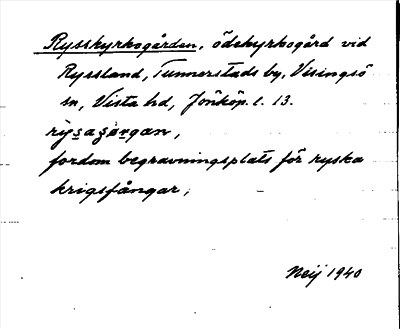 Rysskyrkogården, ödekyrkogård vid
Ryssland, Tunnerstads by, Visingsö
sn, Vista hd, Jönköp. l. 13.
fordom begravningsplats för ryska
krigsfångar;
Neij 1940